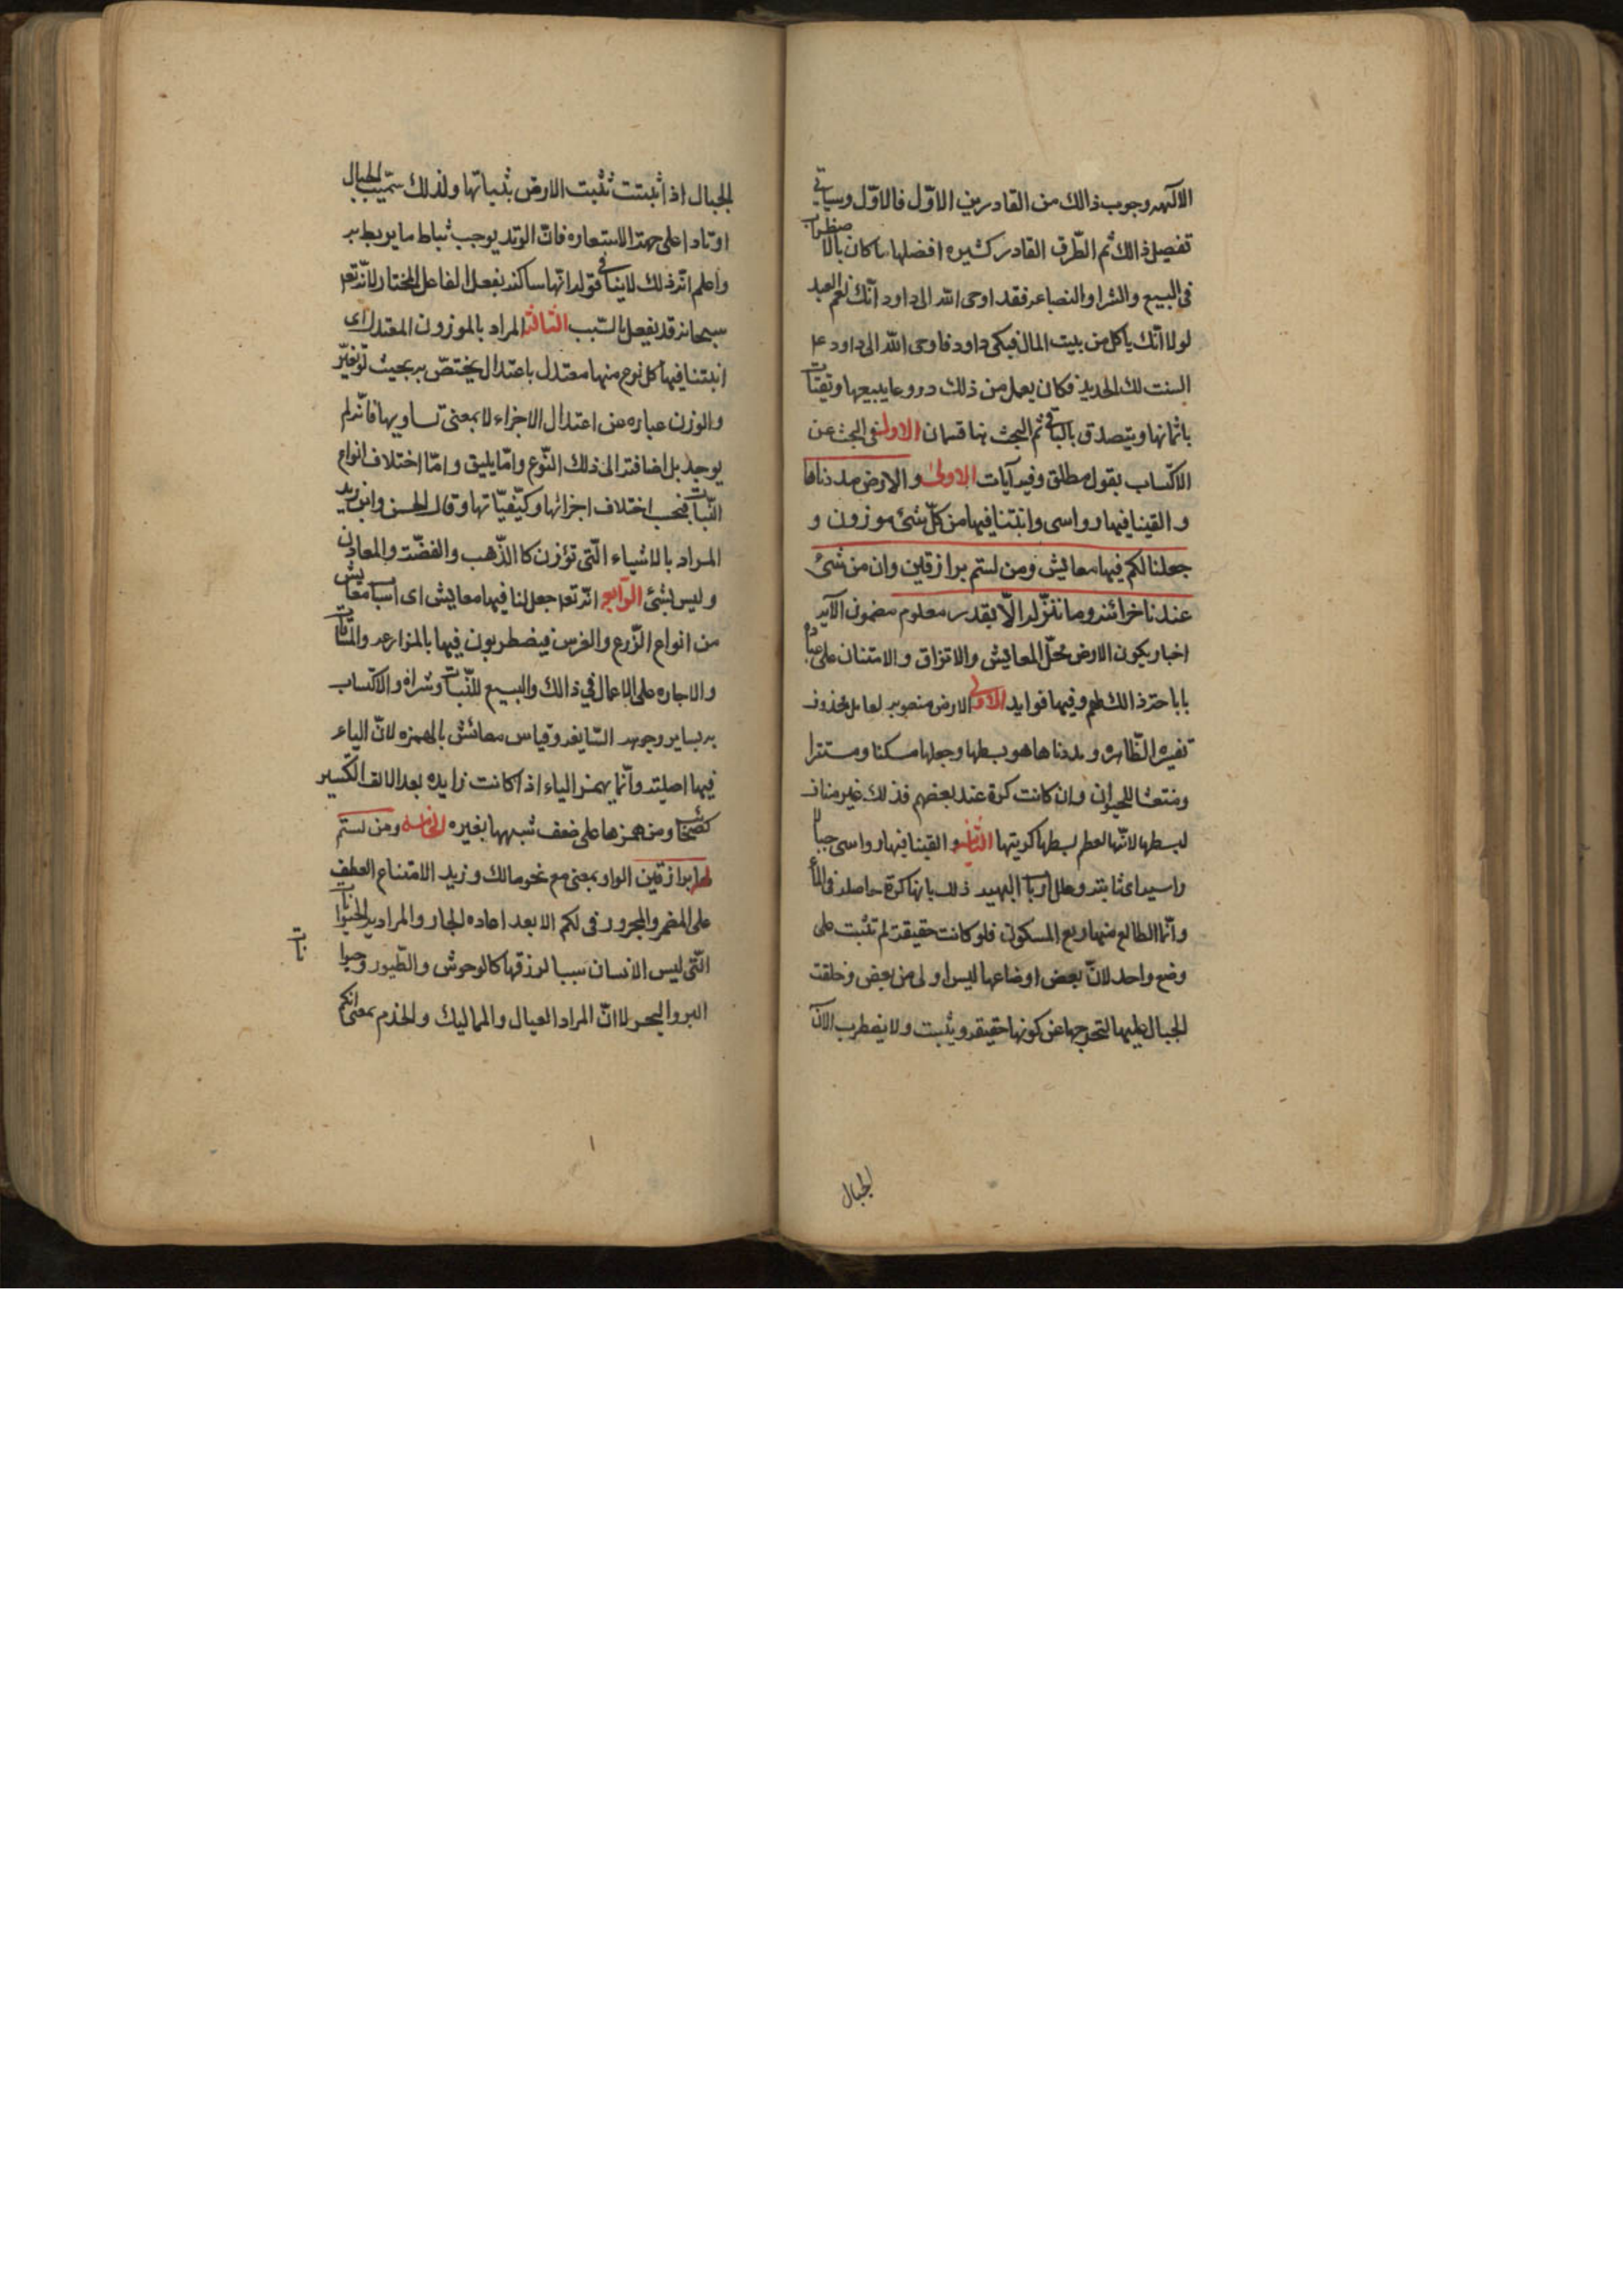 الالهه وجوب ذالك من القادرين الاوّل فالاوّل وسياتي
تفصيل ذالك ثم الطّرق القادر كثيره افضلها ما كان بالاضطراب
فى البيع والشرا و الصناعه فقد اوحى الله الى داود انّك نعم العبد
لولا انّك ياكل من بيت المال فبكى داود فاوحى الله الى داود ع
النت لك الحديد فكان يعمل من ذلك دروعا يبيعها و تقتات
باثمانها ويتصدق بالباقي ثم البحث هنا قسمان الاول فى البحث عن
الاكتساب بقول مطلق وفيه آيات الاولى و الارض مددناها
و القينا فيها رواسى وانبتنا فيها من كلّ شئ موزون و
جعلنا لكم فيها معايش ومن لستم برازقين وان من شئ
عندنا خزائنه وما ننزّله الّا بقدر معلوم مضمون الآيه
اخبار بكون الارض محلّ المعايش والارتزاق والامتنان على عباده
باباحة ذالك لهم وفيها فوايد الاولى الارض منصوبه لعامل محذوف
تفسيره الظّاهر و مددناها هو بسطها وجعلها مسكنا ومستقرا
ومتعشا للحيوان وان كانت كرة عند بعضهم فذلك غير مناف
لبسطها لانّها لعظم بسطها كريتها الثانيه و القينا فيها رواسى جبالا
راسيه اى ثابته وعلل ارباب الهيه ذلك بانها كرة حاصله فى الماء
وانّما الطالع منها ربع المسكون فلو كانت حقيقة لم تثبت على
وضع واحد لانّ بعض اوضاعها ليس اولى من بعض وخلقت
الجبال عليها لتخرجها عن كونها حقيقه ويثبت ولا يضطرب لانّ
الجبال
الجبال اذا ثبتت تثبت الارض بثباتها ولذلك سمّيت الجبال
اوتادا على جهة الاستعاره فانّ الوتد يوجب ثبات ما يربط به
واعلم انّ ذلك لا ينافى قوله انّها ساكنه بفعل الفاعل المختار لانّه تعه
سبحانه قد يفعل بالسّبب الثالثه المراد بالموزون المعتدل اى
انبتنا فيها كل نوع منها معتدل باعتدال يختصّ به بحيث لو تغيّر
والوزن عباره عن اعتدال الاجزاء لا بمعنى تساويها فانّه لم
يوجد بل اضافته الى ذلك النّوع وامّا يليق و امّا اختلاف انواع
النّبات فبحسب اختلاف اجزائها وكيّفيّاتها و قال الحسن وابن زيد
المراد بالاشياء الّتى توزن كالذّهب والفضّة والمعادن
وليس بشئ الرّابع انّه تعه جعل لنا فيها معايش اى اسبا معايش
من انواع الزّرع والغرس فيضطربون فيها بالمزارعه والمساقات
والاجاره على الاعمال في ذالك والبيع للنّبات وشراؤه والاكتساب
به بساير وجوهه السّايغه وقياس معائش بالهمزه لانّ الياء
فيها اصليته وانّما يهمز الياء اذا كانت زايده بعد الالف التكسير
كصحائف ومن همزها على ضعف شبهها بغيره الخامسه ومن لستم
له برازقين الواو بمعنى مع نحو مالك وزيد الامتناع العطف
على المضمر والمجرور فى لكم الا بعد اعاده الجار والمراد به الحيوانات
الّتى ليس الانسان سببا لرزقها كالوحوش والطّيور وحيوا
نات
البر والبحر لا انّ المراد العيال والمماليك والخدم بمعنى انكم